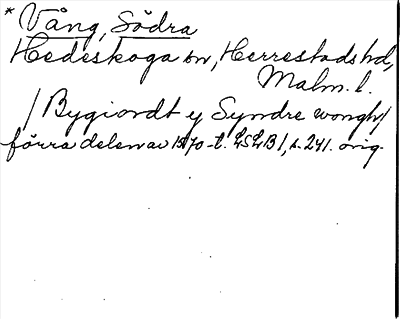 * Vång, Södra
Hedeskoga sn, Herrestads hd,
Malm. l.
/ Bygiordt y Syndre wongh /
förra delen av 1570-t. LSLB 1, s. 241. orig.